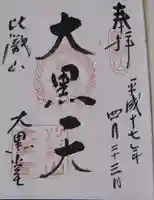 奉拝
平成十七年
四月二十三日
大黒天
比叡山
大黒堂